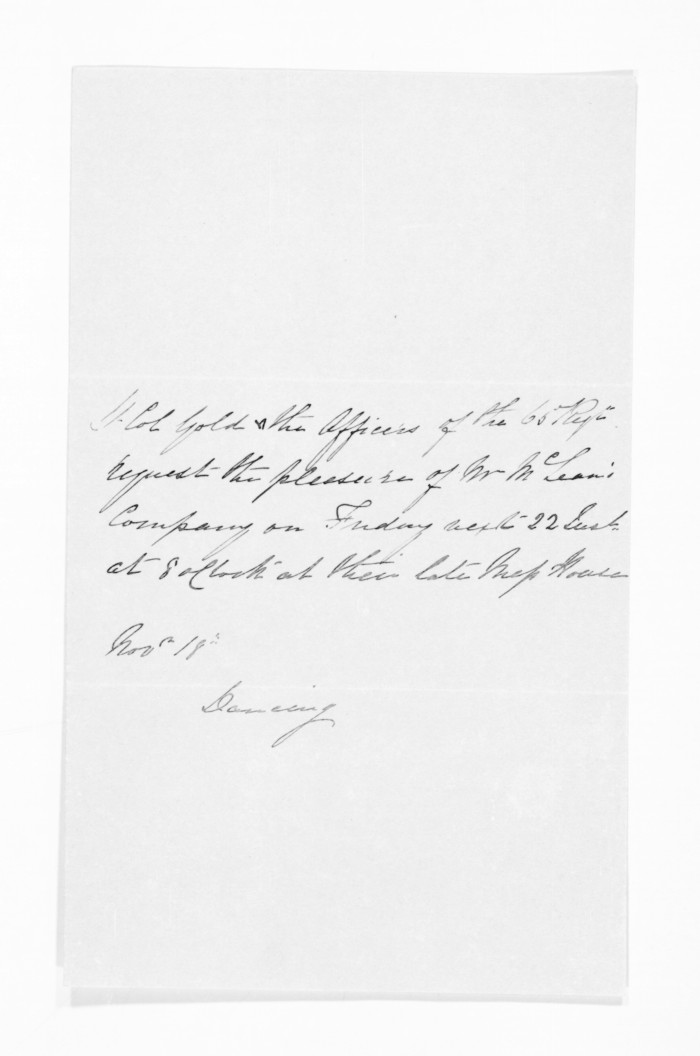 Lt. Col Gold & the Officers of the 65 Regt.
request the pleasure of Mr McLean's
Company on Friday next 22 Inst.
at 8 oClock at their late Mess House
Novr 18th
Dancing